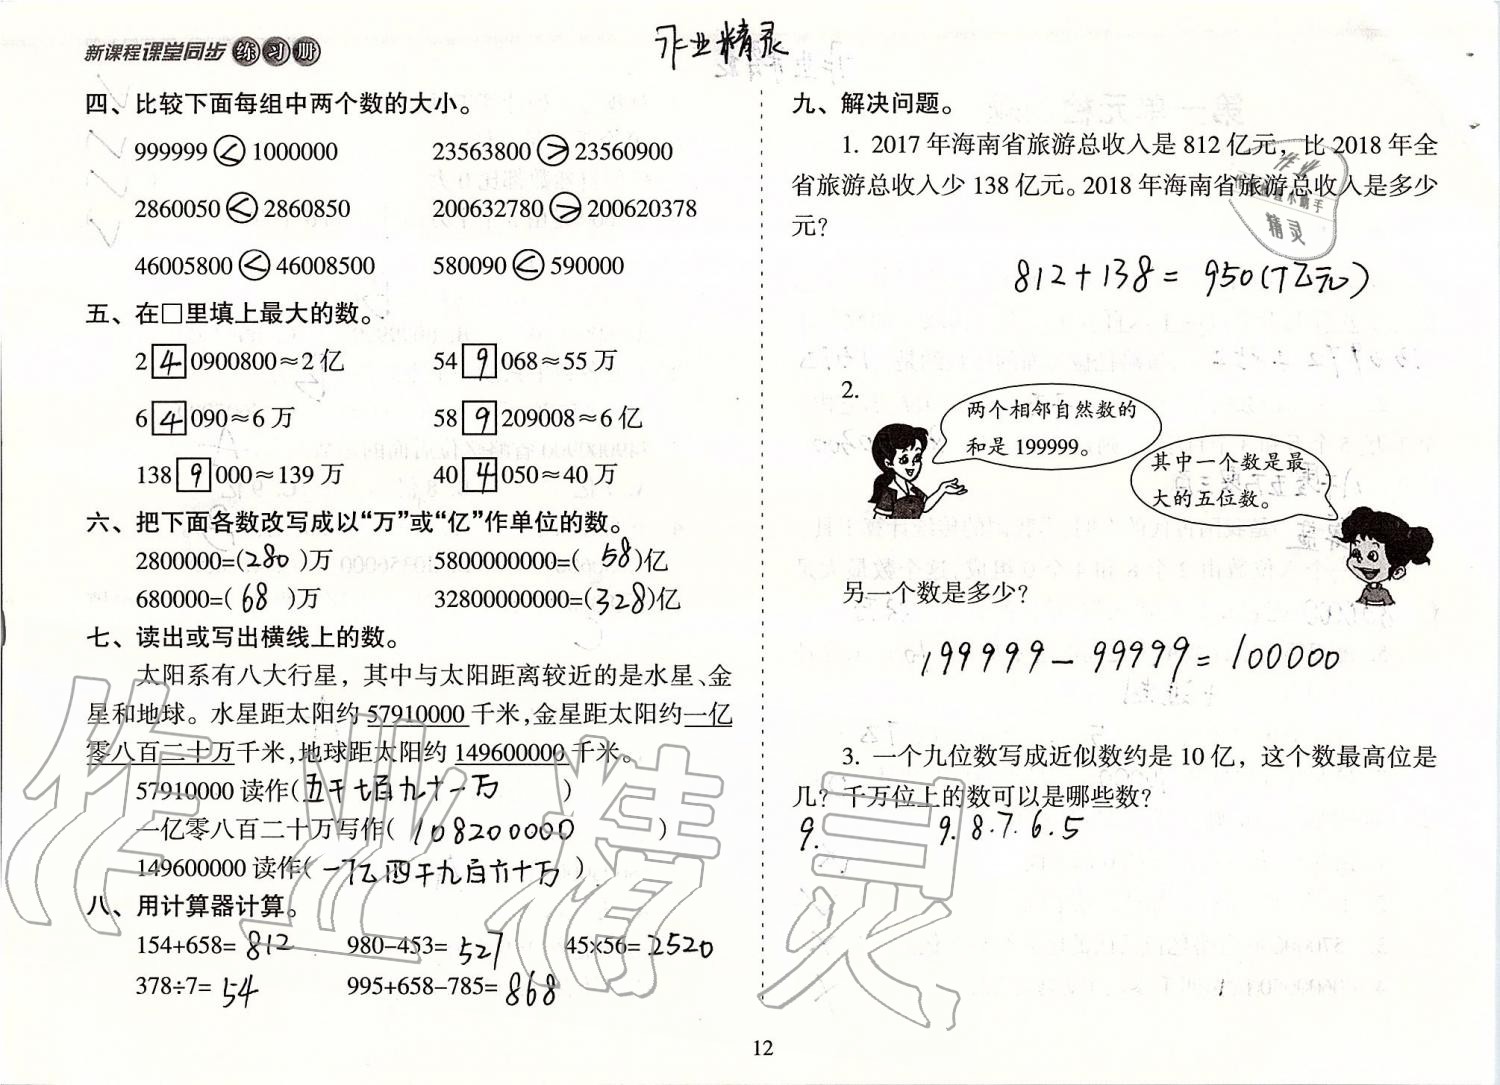 新课程课堂同步练习册
作业精灵
四、比较下面每组中两个数的大小。
999999 < 1000000 23563800 > 23560900
2860050 < 2860850 200632780 > 200620378
46005800 < 46008500 580090 < 590000
五、在□里填上最大的数。
2 4 0900800≈2 亿 54 9 068≈55 万
6 4 090≈6 万 58 9 209008≈6 亿
138 9 000≈139 万 40 4 050≈40 万
六、把下面各数改写成以“万”或“亿”作单位的数。
2800000=(280)万 5800000000=(58)亿
680000=(68)万 32800000000=(328)亿
七、读出或写出横线上的数。
太阳系有八大行星，其中与太阳距离较近的是水星、金
星和地球。水星距太阳约 57910000 千米,金星距太阳约一亿
零八百二十万千米,地球距太阳约 149600000 千米。
57910000 读作(五千七百九十一万)
一亿零八百二十万写作(108200000)
149600000 读作(一亿四千九百六十万)
八、用计算器计算。
154+658= 812 980-453= 527 45×56= 2520
378÷7= 54 995+658-785= 868
九、解决问题。
1. 2017 年海南省旅游总收入是 812 亿元，比 2018 年全
省旅游总收入少 138 亿元。2018 年海南省旅游总收入是多少
元？
812+138= 950(亿元)
2.
两个相邻自然数的
和是 199999。
其中一个数是最
大的五位数。
另一个数是多少？
199999-99999=100000
3. 一个九位数写成近似数约是 10 亿，这个数最高位是
几？千万位上的数可以是哪些数？
9. 9.8.7.6.5
12
作业精灵